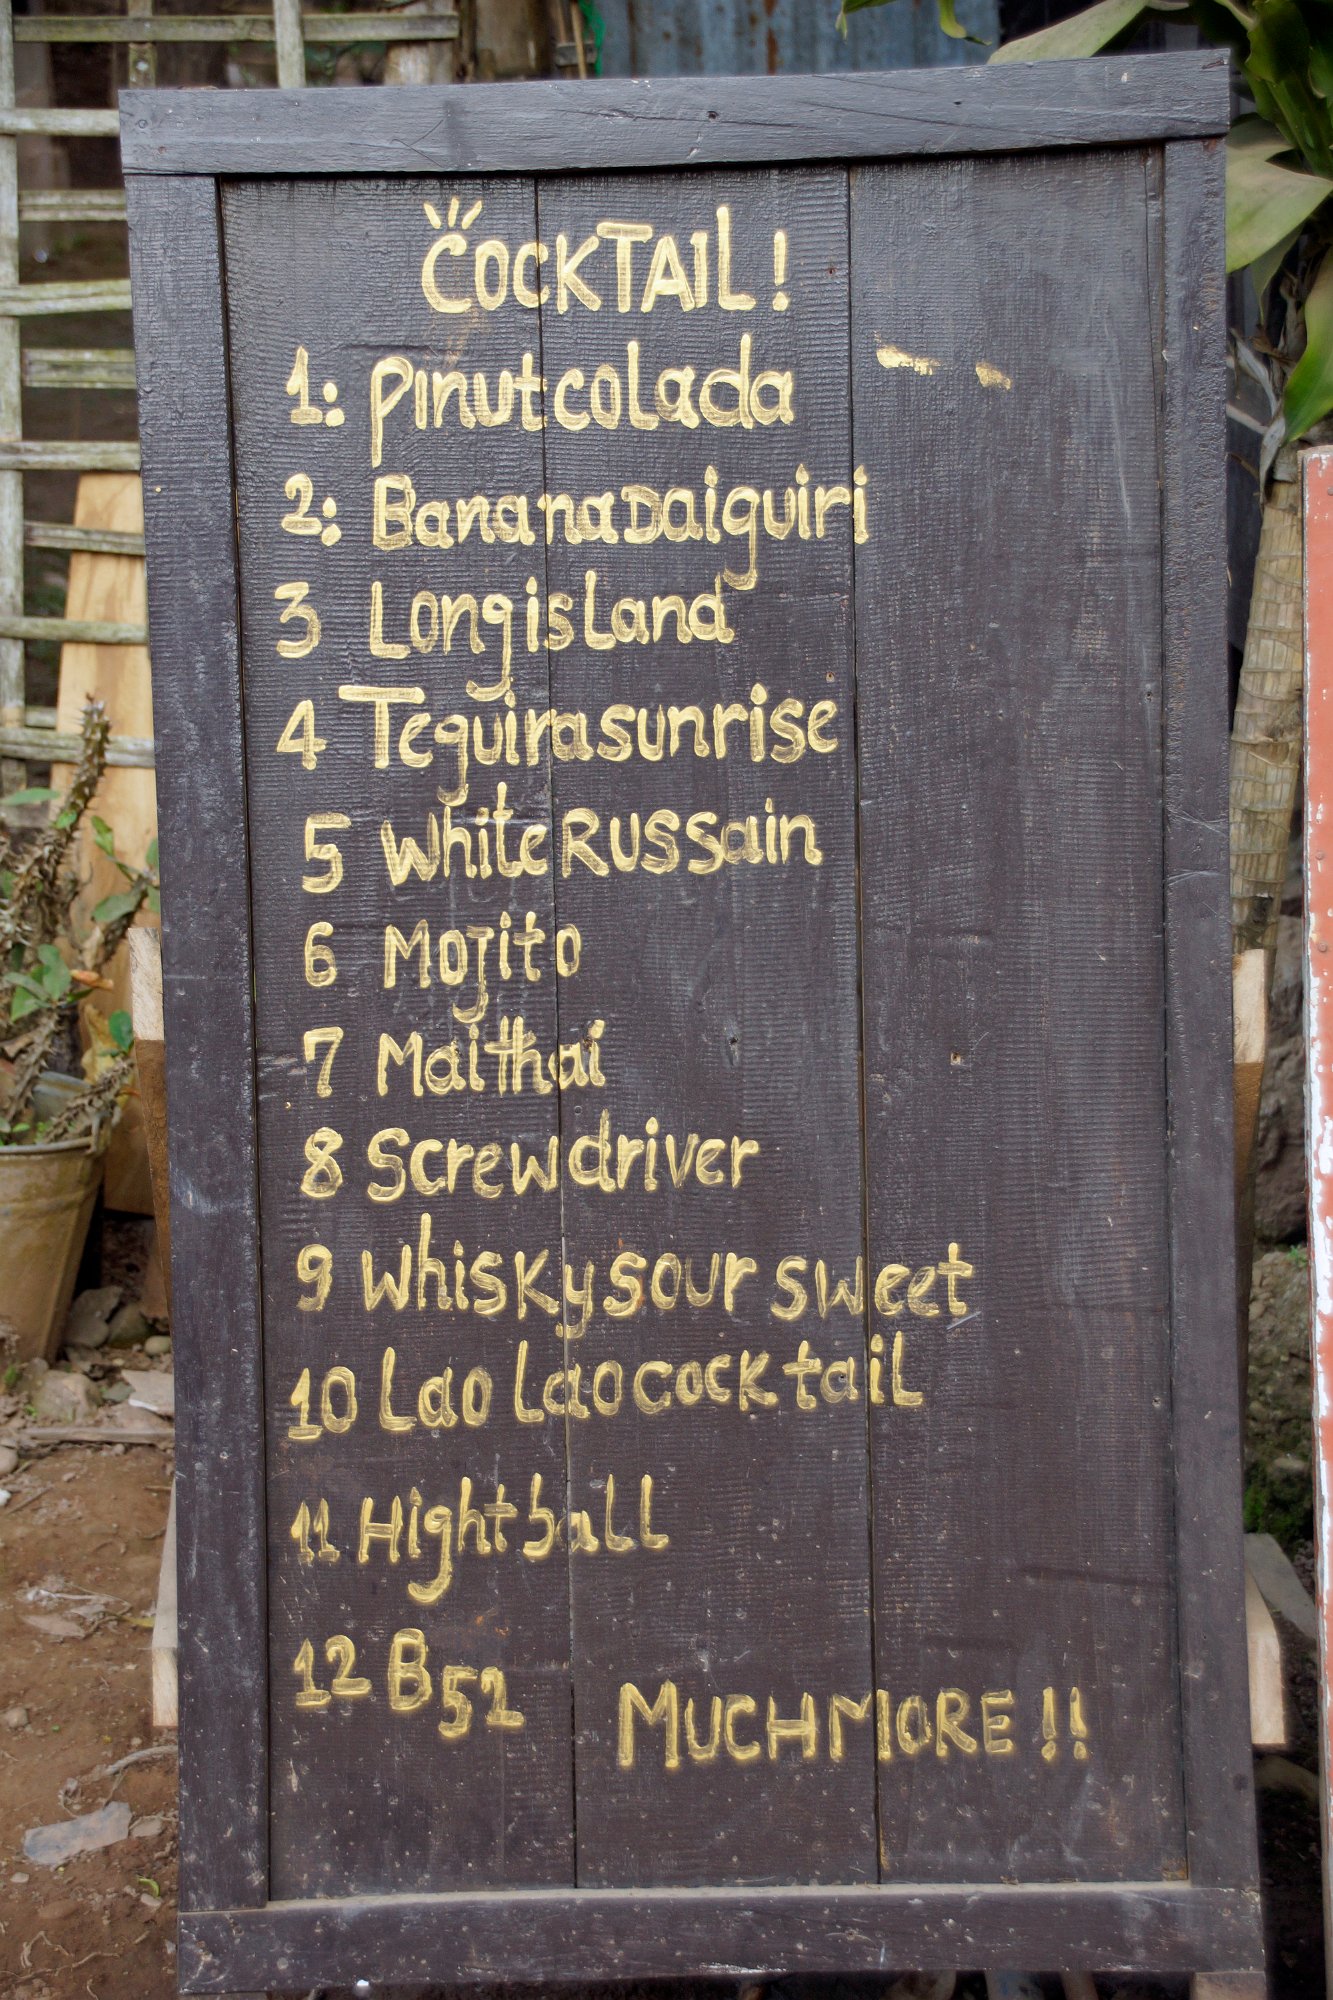 COCKTAIL!
1: pinutcolada
2: BananaDaiguiri
3 Longisland
4 Teguirasunrise
5 White Russain
6 Mojito
7 Maithai
8 Screwdriver
9 Whiskysour sweet
10 Lao Laococktail
11 Hightball
12 B52
MUCHMORE!!